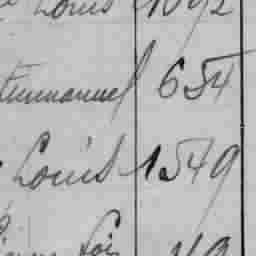 Louis 1092
Emmanuel 654
Louis 1549